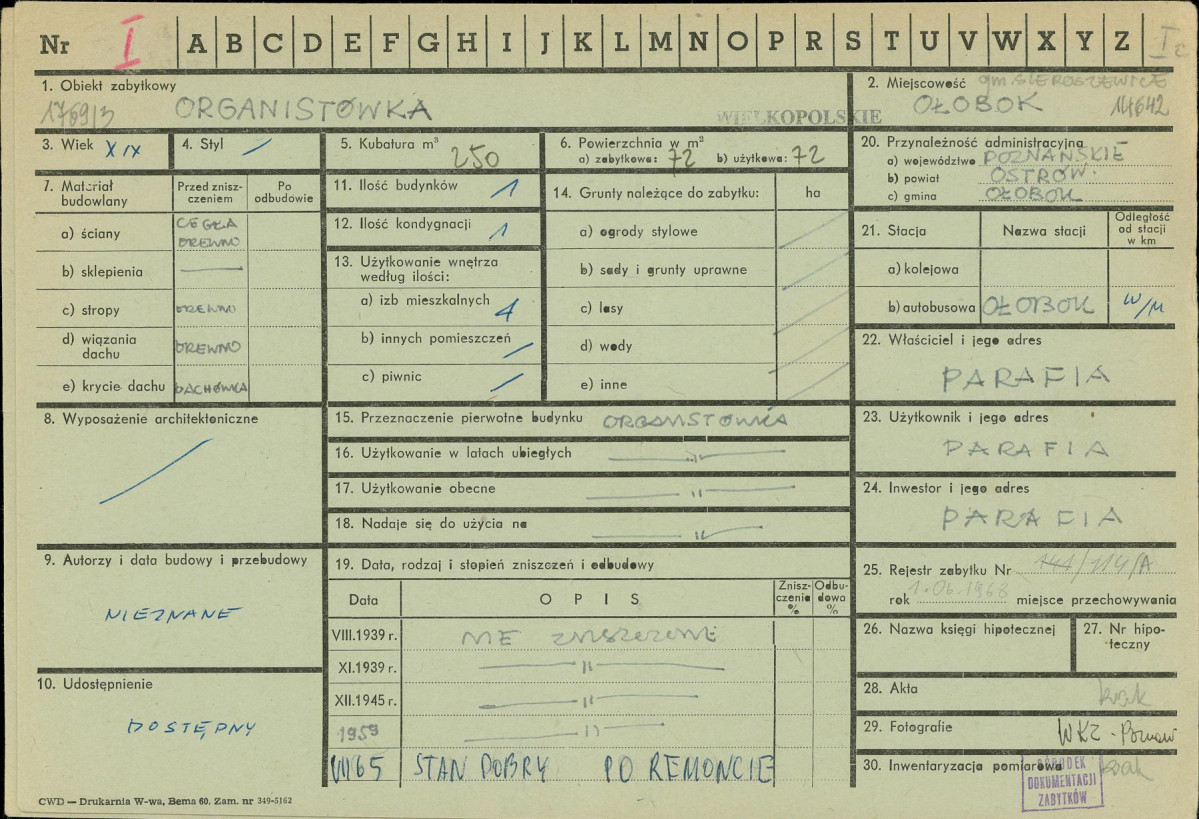 Nr I A B C D E F G H I J K L M N O P R S T U V W X Y Z I c
1. Obiekt zabytkowy
1769/3 ORGANISTÓWKA
WIELKOPOLSKIE
2. Miejscowość gm. SIEROSZEWICE
OŁOBOK 14642
3. Wiek XIX
4. Styl
5. Kubatura m³ 250
6. Powierzchnia w m²
a) zabytkowa: 72 b) użytkowa: 72
20. Przynależność administracyjna
a) województwo POZNAŃSKIE
b) powiat OSTRÓW.
c) gmina OŁOBOK
7. Materiał budowlany
Przed zniszczeniem
Po odbudowie
a) ściany CEGŁA DREWNO
b) sklepienia
c) stropy DREWNO
d) wiązania dachu DREWNO
e) krycie dachu DACHÓWKA
11. Ilość budynków 1
12. Ilość kondygnacji 1
13. Użytkowanie wnętrza
według ilości:
a) izb mieszkalnych 4
b) innych pomieszczeń
c) piwnic
14. Grunty należące do zabytku: ha
a) ogrody stylowe
b) sady i grunty uprawne
c) lasy
d) wody
e) inne
21. Stacja Nazwa stacji Odległość od stacji w km
a) kolejowa
b) autobusowa OŁOBOK W/M
22. Właściciel i jego adres
PARAFIA
8. Wyposażenie architektoniczne
15. Przeznaczenie pierwotne budynku ORGANISTÓWKA
16. Użytkowanie w latach ubiegłych — " —
17. Użytkowanie obecne — " —
18. Nadaje się do użycia na — " —
23. Użytkownik i jego adres
PARAFIA
24. Inwestor i jego adres
PARAFIA
9. Autorzy i data budowy i przebudowy
NIEZNANE
10. Udostępnienie
DOSTĘPNY
19. Data, rodzaj i stopień zniszczeń i odbudowy
Data OPIS Zniszczenia % Odbudowa %
VIII.1939 r. NIE ZNISZCZONE
XI.1939 r. — " —
XII.1945 r. — " —
1959 — " —
VII 65 STAN DOBRY PO REMONCIE
25. Rejestr zabytku Nr 141/114/A
rok 1.06.1968 miejsce przechowywania
26. Nazwa księgi hipotecznej
27. Nr hipoteczny
28. Akta brak
29. Fotografie WKZ - Poznań
30. Inwentaryzacja pomiarowa brak
OŚRODEK
DOKUMENTACJI
ZABYTKÓW
CWD — Drukarnia W-wa, Bema 60. Zam. nr 349-5162